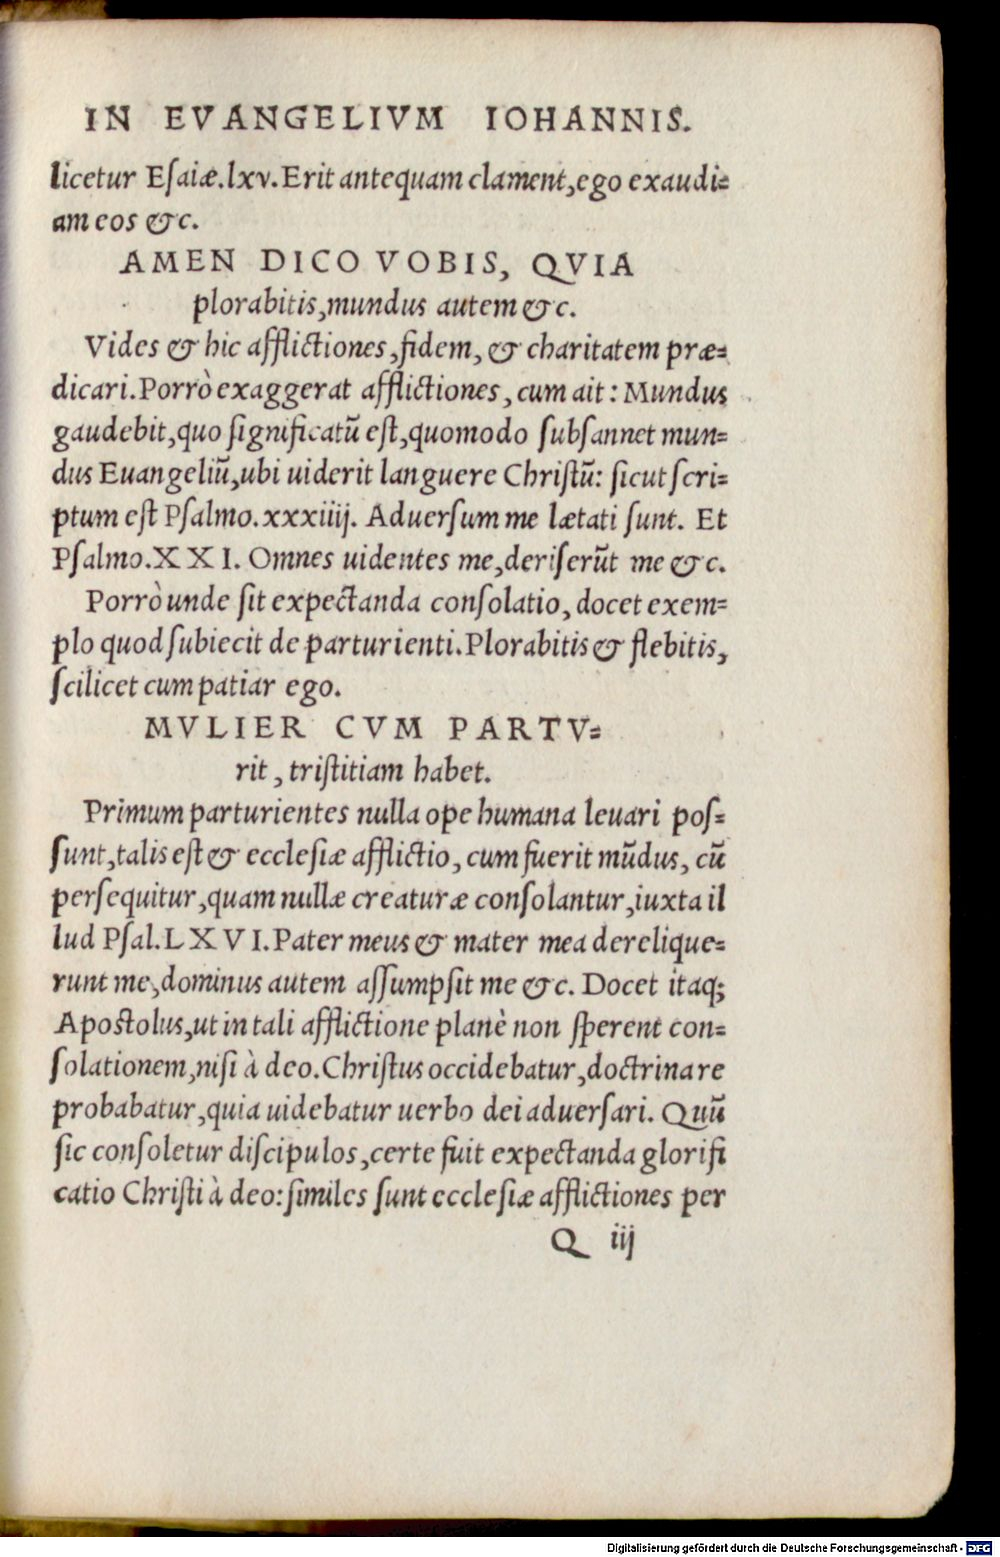 IN EVANGELIVM IOHANNIS.
licetur Esaiæ.lxv.Erit antequam clament,ego exaudi=
am eos &c.
AMEN DICO VOBIS, QVIA
plorabitis,mundus autem &c.
Vides & hic afflictiones,fidem, & charitatem præ=
dicari.Porrò exaggerat afflictiones, cum ait: Mundus
gaudebit,quo significatũ est,quomodo subsannet mun=
dus Euangeliũ,ubi uiderit languere Christũ: sicut scri=
ptum est Psalmo.xxxiiij. Aduersum me lætati sunt. Et
Psalmo.XXI. Omnes uidentes me,deriserũt me &c.
Porrò unde sit expectanda consolatio, docet exem=
plo quod subiecit de parturienti.Plorabitis & flebitis,
scilicet cum patiar ego.
MVLIER CVM PARTV=
rit, tristitiam habet.
Primum parturientes nulla ope humana leuari pos=
sunt,talis est & ecclesiæ afflictio, cum fuerit mũdus, cũ
persequitur,quam nullæ creaturæ consolantur,iuxta il
lud Psal.LXVI.Pater meus & mater mea derelique=
runt me,dominus autem assumpsit me &c. Docet itaq;
Apostolus,ut in tali afflictione planè non sperent con=
solationem,nisi à deo.Christus occidebatur,doctrina re
probabatur,quia uidebatur uerbo dei aduersari. Quũ
sic consoletur discipulos,certe fuit expectanda glorifi
catio Christi à deo:similes sunt ecclesiæ afflictiones per
Q iij
Digitalisierung gefördert durch die Deutsche Forschungsgemeinschaft - DFG